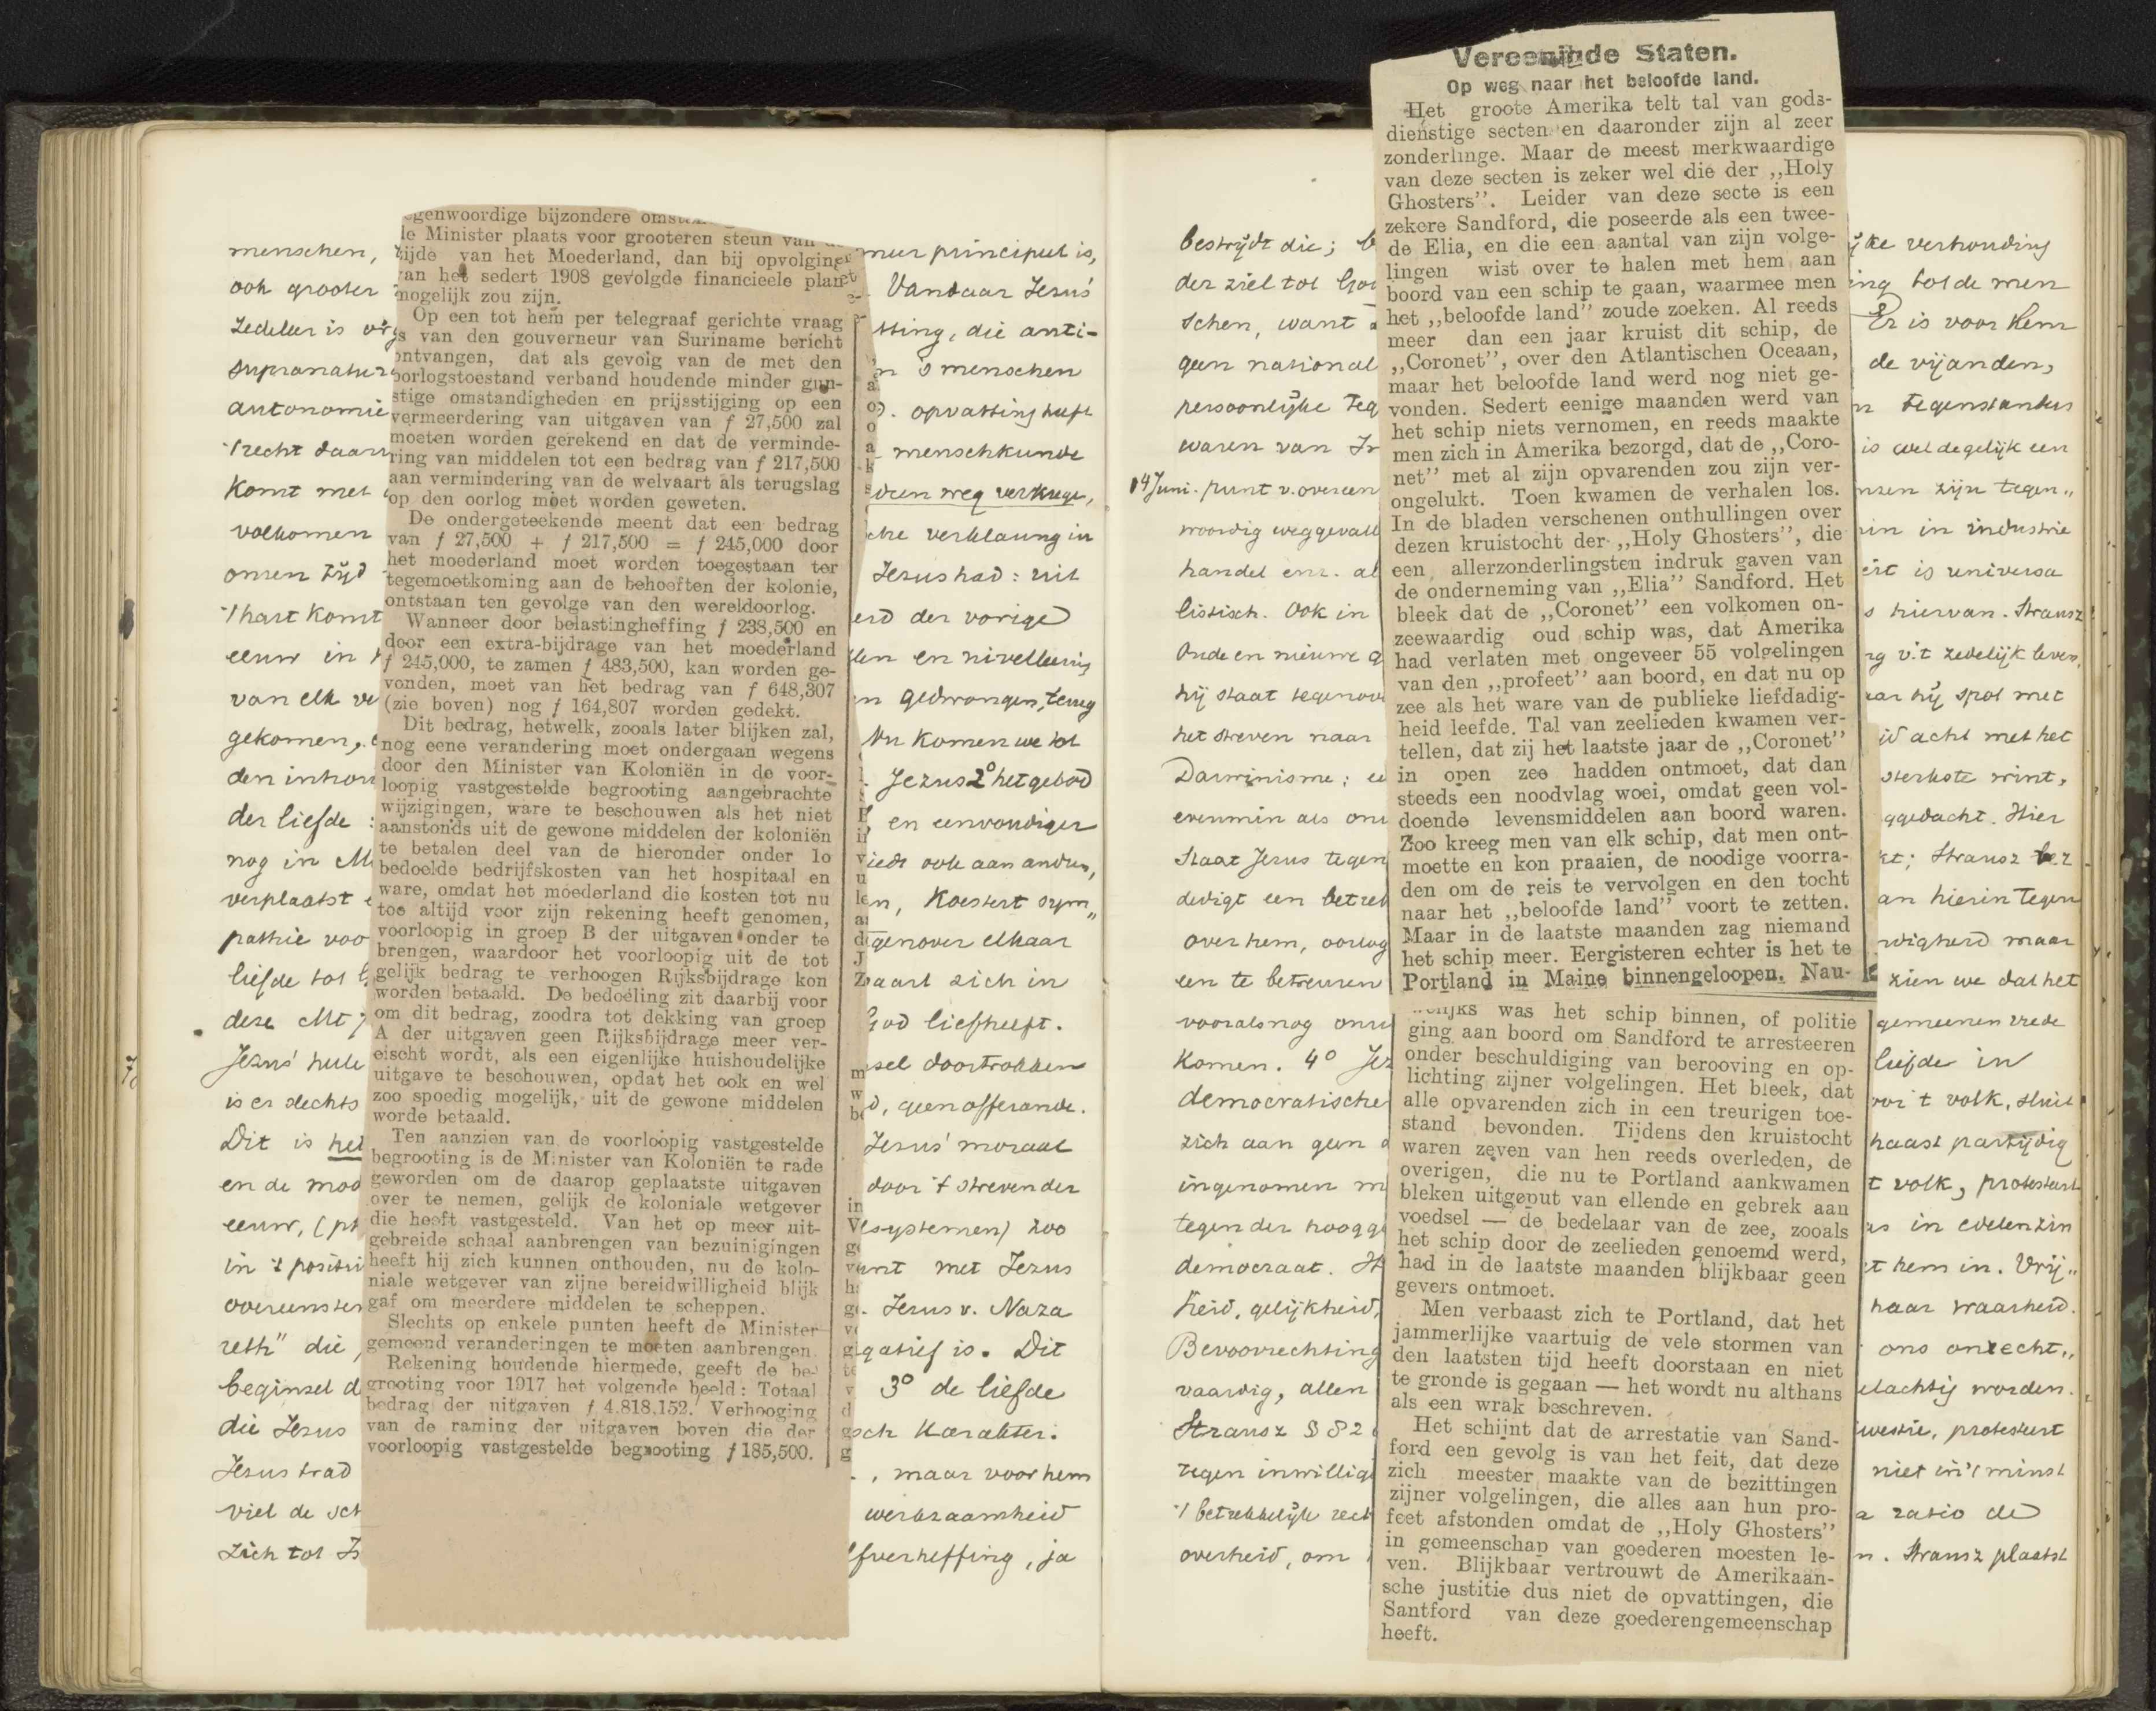 menschen,
ook grooter
zedeleer is
autonomie
't recht daarv
komt met
volkomen
onzen tijd
't hart komt
eeuw in
van elk ve
gekomen,
den inhou
der liefde :
nog in
verplaatst
pathie voo
liefde tot
deze
Jezus' hule
is er slechts
Dit is het
en de moo
eeuw, (ph
in 't positi
overeenste
reth" die
beginsel d
die Jezus
Jezus trad
viel de sch
zich tot
egenwoordige bijzondere omst
le Minister plaats voor grooteren steun van d
zijde van het Moederland, dan bij opvolging
van het sedert 1908 gevolgde financieele plan
mogelijk zou zijn.
Op een tot hem per telegraaf gerichte vraag
is van den gouverneur van Suriname bericht
ontvangen, dat als gevolg van de met den
oorlogstoestand verband houdende minder gun-
stige omstandigheden en prijsstijging op een
vermeerdering van uitgaven van f 27,500 zal
moeten worden gerekend en dat de verminde-
ring van middelen tot een bedrag van f 217,500
aan vermindering van de welvaart als terugslag
op den oorlog moet worden geweten.
De ondergeteekende meent dat een bedrag
van f 27,500 + f 217,500 = f 245,000 door
het moederland moet worden toegestaan ter
tegemoetkoming aan de behoeften der kolonie,
ontstaan ten gevolge van den wereldoorlog.
Wanneer door belastingheffing f 238,500 en
door een extra-bijdrage van het moederland
f 245,000, te zamen f 483,500, kan worden ge-
vonden, moet van het bedrag van f 648,307
(zie boven) nog f 164,807 worden gedekt.
Dit bedrag, hetwelk, zooals later blijken zal,
nog eene verandering moet ondergaan wegens
door den Minister van Koloniën in de voor-
loopig vastgestelde begrooting aangebrachte
wijzigingen, ware te beschouwen als het niet
aanstonds uit de gewone middelen der koloniën
te betalen deel van de hieronder onder 1o
bedoelde bedrijfskosten van het hospitaal en
ware, omdat het moederland die kosten tot nu
toe altijd voor zijn rekening heeft genomen,
voorloopig in groep B der uitgaven onder te
brengen, waardoor het voorloopig uit de tot
gelijk bedrag te verhoogen Rijksbijdrage kon
worden betaald. De bedoeling zit daarbij voor
om dit bedrag, zoodra tot dekking van groep
A der uitgaven geen Rijksbijdrage meer ver-
eischt wordt, als een eigenlijke huishoudelijke
uitgave te beschouwen, opdat het ook en wel
zoo spoedig mogelijk, uit de gewone middelen
worde betaald.
Ten aanzien van de voorloopig vastgestelde
begrooting is de Minister van Koloniën te rade
geworden om de daarop geplaatste uitgaven
over te nemen, gelijk de koloniale wetgever
die heeft vastgesteld. Van het op meer uit-
gebreide schaal aanbrengen van bezuinigingen
heeft hij zich kunnen onthouden, nu de kolo-
niale wetgever van zijne bereidwilligheid blijk
gaf om meerdere middelen te scheppen.
Slechts op enkele punten heeft de Minister
gemeend veranderingen te moeten aanbrengen.
Rekening houdende hiermede, geeft de be-
grooting voor 1917 het volgende beeld: Totaal
bedrag der uitgaven f 4.818,152. Verhooging
van de raming der uitgaven boven die der
voorloopig vastgestelde begrooting f 185,500.
meer principieel is,
Vandaar Jezus'
tting, die anti-
n 's menschen
opvatting heeft
menschkunde
den weg verkrege,
che verklaring in
Jezus had: uit
erd der vorige
en nivelleering
n gedwongen, terug
Nu komen we tot
Jezus 2° het gebod
en eenvoudiger
iedt ook aan andere,
len, koestert sym„
genover elkaar
baart zich in
God liefheeft.
sel doortrokken
d, geen offerande.
Jezus' moraal
door 't streven der
lsystemen) zoo
unt met Jezus
Jezus v. Naza
gatief is. Dit
3° de liefde
sch karakter.
, maar voor hem
werkzaamheid
fverheffing, ja
bestrijdt die;
der ziel tot God
schen, want
geen national
persoonlijke teg
waren van
14 Juni. punt v. overeen
woordig weggevall
handel enz. al
listisch. Ook in
Oude en nieuwe g
hij staat tegenov
het streven naar
Darwinisme;
evenmin als
staat Jezus tegen
dedigt een betrek
over hem, oorlog
een te betreuren
vooralsnog
komen. 4° Jez
democratische
zich aan geen
ingenomen m
tegen der hoogge
democraat.
heid, gelijkheid,
Bevoorrechting
vaardig, allen
Strausz § 82
tegen inwillig
't betrekkelijk rech
overheid, om
Vereenigde Staten.
Op weg naar het beloofde land.
Het groote Amerika telt tal van gods-
dienstige secten en daaronder zijn al zeer
zonderlinge. Maar de meest merkwaardige
van deze secten is zeker wel die der „Holy
Ghosters". Leider van deze secte is een
zekere Sandford, die poseerde als een twee-
de Elia, en die een aantal van zijn volge-
lingen wist over te halen met hem aan
boord van een schip te gaan, waarmee men
het „beloofde land" zoude zoeken. Al reeds
meer dan een jaar kruist dit schip, de
„Coronet", over den Atlantischen Oceaan,
maar het beloofde land werd nog niet ge-
vonden. Sedert eenige maanden werd van
het schip niets vernomen, en reeds maakte
men zich in Amerika bezorgd, dat de „Coro-
net" met al zijn opvarenden zou zijn ver-
ongelukt. Toen kwamen de verhalen los.
In de bladen verschenen onthullingen over
dezen kruistocht der „Holy Ghosters", die
een allerzonderlingsten indruk gaven van
de onderneming van „Elia" Sandford. Het
bleek dat de „Coronet" een volkomen on-
zeewaardig oud schip was, dat Amerika
had verlaten met ongeveer 55 volgelingen
van den „profeet" aan boord, en dat nu op
zee als het ware van de publieke liefdadig-
heid leefde. Tal van zeelieden kwamen ver-
tellen, dat zij het laatste jaar de „Coronet"
in open zee hadden ontmoet, dat dan
steeds een noodvlag woei, omdat geen vol-
doende levensmiddelen aan boord waren.
Zoo kreeg men van elk schip, dat men ont-
moette en kon praaien, de noodige voorra-
den om de reis te vervolgen en den tocht
naar het „beloofde land" voort te zetten.
Maar in de laatste maanden zag niemand
het schip meer. Eergisteren echter is het te
Portland in Maine binnengeloopen. Nau-
welijks was het schip binnen, of politie
ging aan boord om Sandford te arresteeren
onder beschuldiging van berooving en op-
lichting zijner volgelingen. Het bleek, dat
alle opvarenden zich in een treurigen toe-
stand bevonden. Tijdens den kruistocht
waren zeven van hen reeds overleden, de
overigen, die nu te Portland aankwamen
bleken uitgeput van ellende en gebrek aan
voedsel — de bedelaar van de zee, zooals
het schip door de zeelieden genoemd werd,
had in de laatste maanden blijkbaar geen
gevers ontmoet.
Men verbaast zich te Portland, dat het
jammerlijke vaartuig de vele stormen van
den laatsten tijd heeft doorstaan en niet
te gronde is gegaan — het wordt nu althans
als een wrak beschreven.
Het schijnt dat de arrestatie van Sand-
ford een gevolg is van het feit, dat deze
zich meester maakte van de bezittingen
zijner volgelingen, die alles aan hun pro-
feet afstonden omdat de „Holy Ghosters"
in gemeenschap van goederen moesten le-
ven. Blijkbaar vertrouwt de Amerikaan-
sche justitie dus niet de opvattingen, die
Santford van deze goederengemeenschap
heeft.
ijke verhouding
ing tot de men
Er is voor hem
de vijanden,
n tegenstanders
is wel degelijk een
nzen zijn tegen„
in in industrie
eit is universa
s hiervan. Strausz
ng v. 't zedelijk leven,
aar hij spot met
jd acht met het
sterkste wint,
ggedacht. Hier
kt; Strausz ver
an hierin tegen
digheid maar
zien we dat het
gemeenen vrede
liefde in
voor 't volk, sluit
haast partijdig
t volk, protesteert
as in edelen zin
't hem in. Vrij„
haar waarheid.
ons onrecht„
elachtig worden.
westie, protesteert
niet in 't minst
a ratio de
n. Strausz plaatst